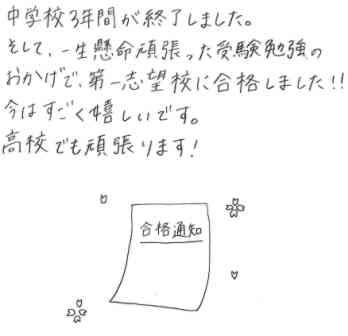 中学校3年間が終了しました。
そして、一生懸命頑張った受験勉強の
おかげで、第一志望校に合格しました!!
今はすごく嬉しいです。
高校でも頑張ります!
合格通知